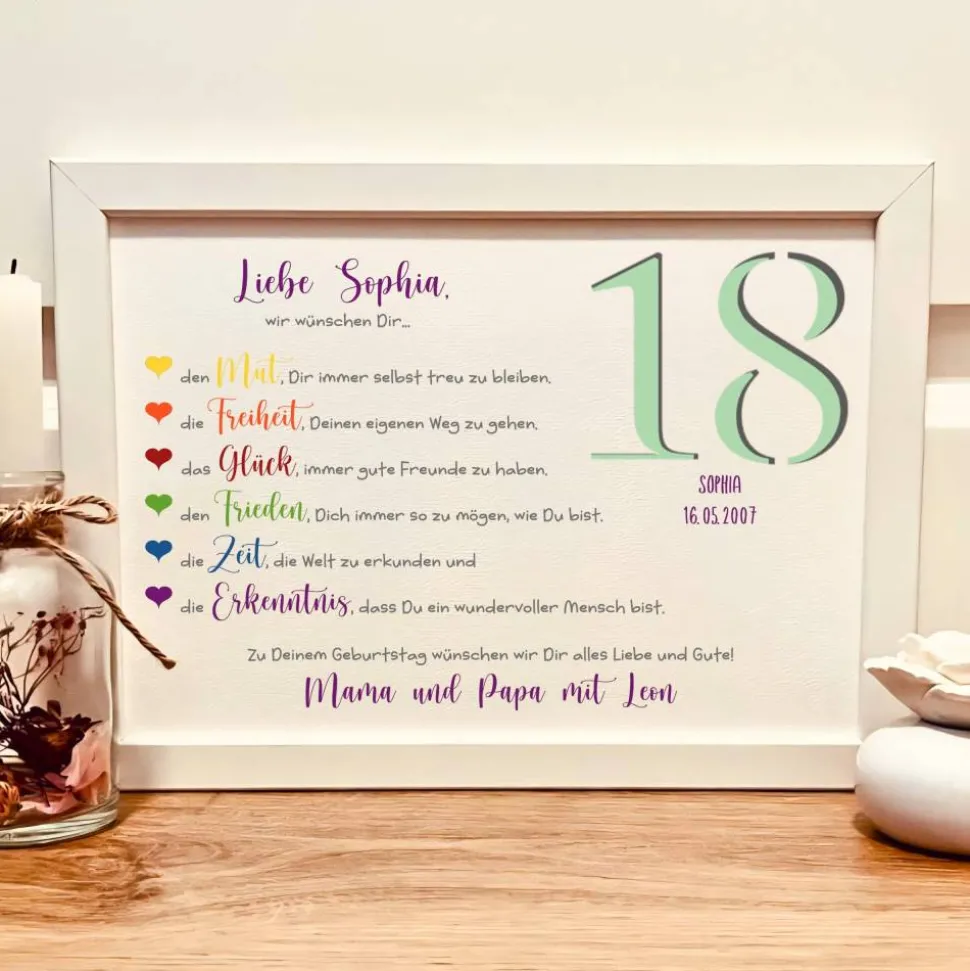 Liebe Sophia,
wir wünschen Dir...
den Mut, Dir immer selbst treu zu bleiben.
die Freiheit, Deinen eigenen Weg zu gehen.
das Glück, immer gute Freunde zu haben.
den Frieden, Dich immer so zu mögen, wie Du bist.
die Zeit, die Welt zu erkunden und
die Erkenntnis, dass Du ein wundervoller Mensch bist.
Zu Deinem Geburtstag wünschen wir Dir alles Liebe und Gute!
Mama und Papa mit Leon
18
SOPHIA
16.05.2007